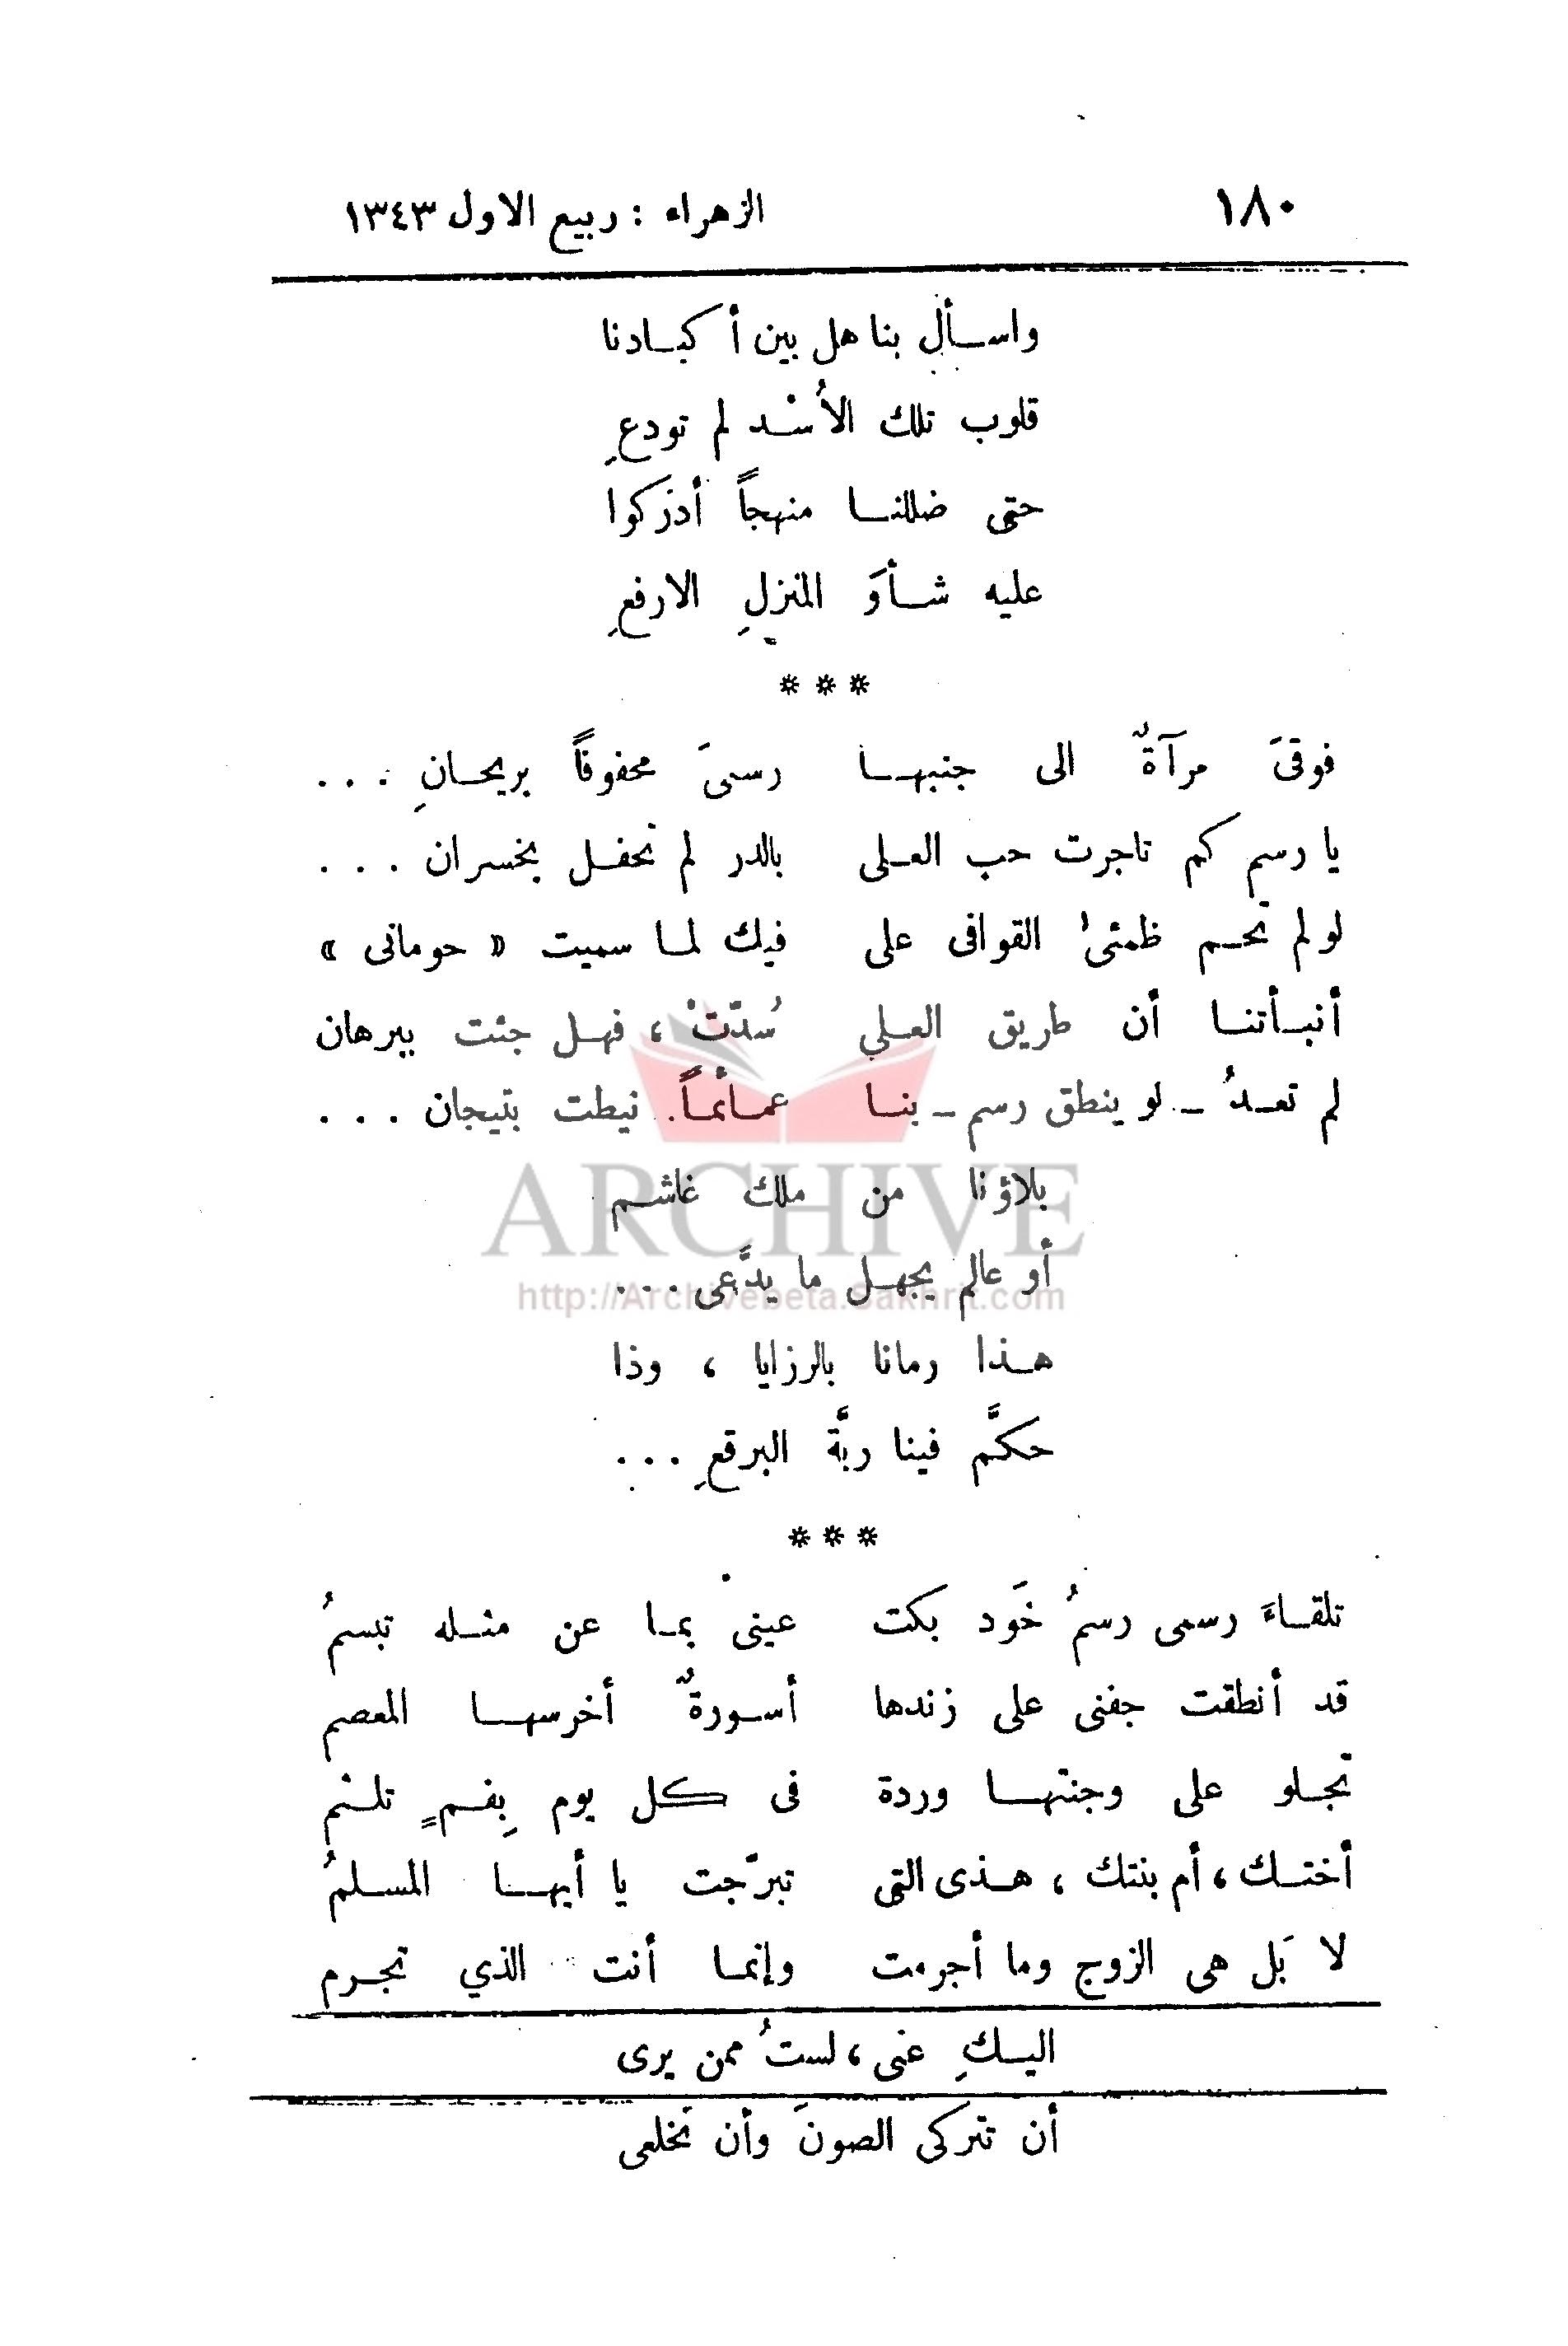 ١٨٠ الزهراء : ربيع الاول ١٣٤٣
واسأل بنا هل بين أكبادنا
قلوب تلك الأُسْد لم تودعِ
حتى ضللنا منهجاً أدرَكوا
عليه شأوَ المنزلِ الارفعِ
* * *
فوقىَ مرآةٌ الى جنبها رسمىَ محفوفاً بريحانِ . . .
يا رسم كم تاجرت حب العلى بالدر لم تحفل بخسران . . .
لو لم تحم ظمئىُ القوافى على فيك لما سميت « حومانى »
أنبأتنا أن طريق العلي سُدّتْ ، فهل جئت ببرهان
لم تعدُ ــ لو ينطق رسم ــ بنا عمائماً نيطت بتيجان . . .
بلاؤنا من ملك غاشم
أو عالم يجهل ما يدَّعى . . .
هذا رمانا بالرزايا ، وذا
حكَّم فينا ربَّة البرقعِ . . .
* * *
تلقاءَ رسمى رسمُ خَود بكت عينى بما عن مثله تبسمُ
قد أنطقت جفنى على زندها أسورةٌ أخرسها المعصم
تجلو على وجنتها وردة فى كل يوم بِفمٍ تلثم
أختك ، أم بنتك ، هذى التى تبرّجت يا أيها المسلمُ
لا بَل هى الزوج وما أجرمت وإنما أنت الذي تجرم
اليكِ عنى ، لستُ ممن يرى
أن تتركى الصونَ وأن تخلعى
ARCHIVE
http://Archivebeta.Sakhrit.com